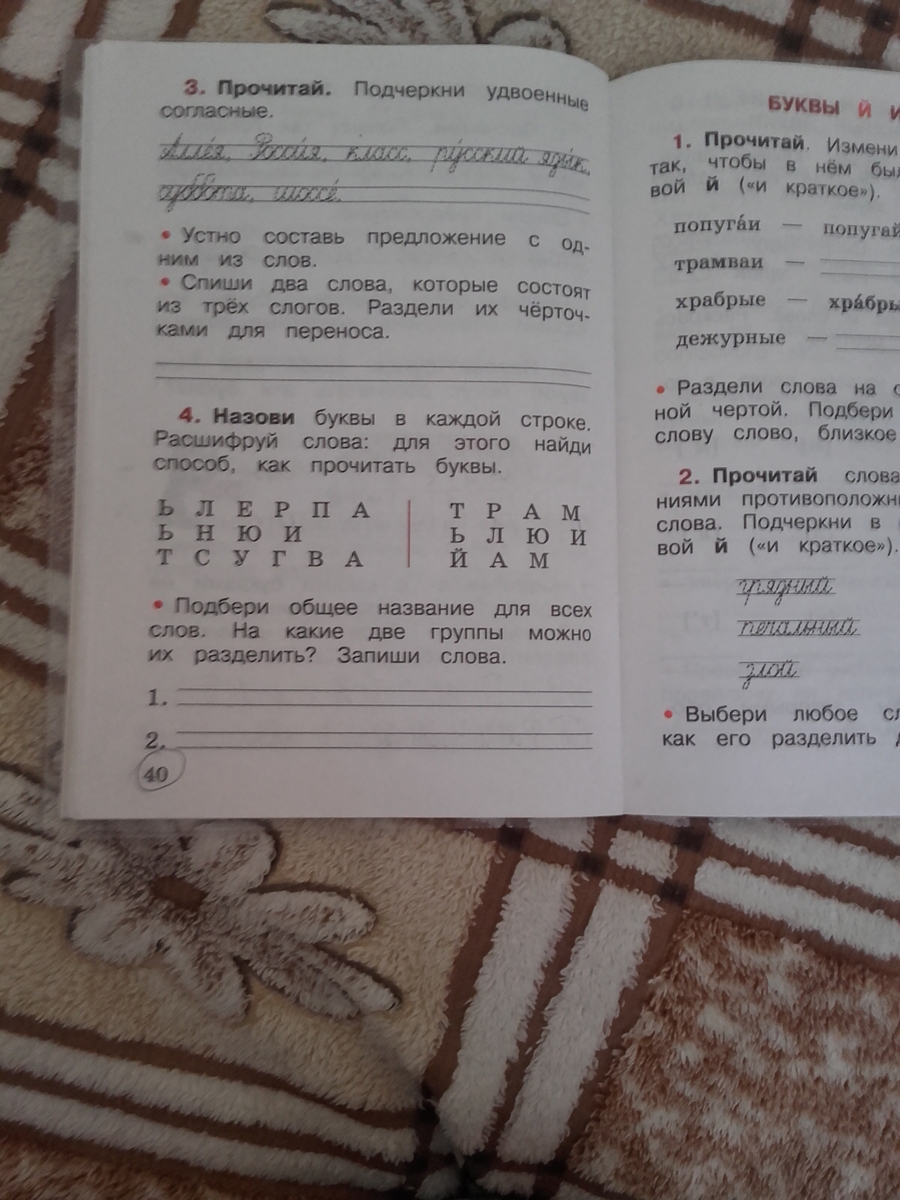 3. Прочитай. Подчеркни удвоенные
согласные.
Алле́я, Росси́я, класс, ру́сский язы́к,
суббота, шоссе́.
• Устно составь предложение с од-
ним из слов.
• Спиши два слова, которые состоят
из трёх слогов. Раздели их чёрточ-
ками для переноса.
4. Назови буквы в каждой строке.
Расшифруй слова: для этого найди
способ, как прочитать буквы.
Ь Л Е Р П А
Ь Н Ю И
Т С У Г В А
Т Р А М
Ь Л Ю И
Й А М
• Подбери общее название для всех
слов. На какие две группы можно
их разделить? Запиши слова.
1.
2.
40
БУКВЫ Й И
1. Прочитай. Измени
так, чтобы в нём
вой й («и краткое»).
попуга́и — попугай
трамваи —
храбрые —
дежурные —
• Раздели слова на
ной чертой. Подбери
слову слово, близкое
2. Прочитай слова
ниями
слова. Подчеркни в
вой й («и краткое»).
грязный
печальный
злой
• Выбери любое
как его разделить